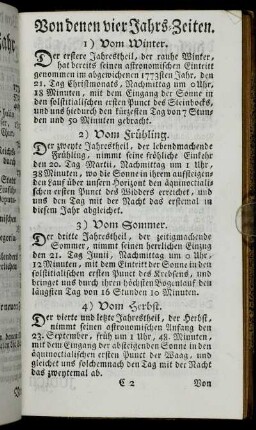 Von denen vier Jahrs-Zeiten.
1) Vom Winter.
Der erstere Jahrestheil, der rauhe Winter,
hat bereits seinen astronomischen Eintritt
genommen im abgewichenen 1773sten Jahr, den
21. Tag Christmonats, Nachmittag um 0 Uhr,
18 Minuten, mit dem Eingang der Sonne in
den solstitialischen ersten Punct des Steinbocks,
und uns hiedurch den kürzesten Tag von 7 Stun
den und 50 Minuten gebracht.
2) Vom Frühling.
Der zweyte Jahrestheil, der lebendmachende
Frühling, nimmt seine fröhliche Einkehr
den 20. Tag Martii, Nachmittag um 1 Uhr,
38 Minuten, wo die Sonne in ihrem aufsteigen
den Lauf über unsern Horizont den äquinoctiali
schen ersten Punct des Widders erreichet, und
uns den Tag mit der Nacht das erstemal in
diesem Jahr abgleichet.
3) Vom Sommer.
Der dritte Jahrestheil, der zeitigmachende
Sommer, nimmt seinen herrlichen Einzug
den 21. Tag Junii, Nachmittag um 0 Uhr,
12 Minuten, mit dem Eintritt der Sonne in den
solstitialischen ersten Punct des Krebsens, und
bringet uns durch ihren höchsten Bogenlauf den
längsten Tag von 16 Stunden 10 Minuten.
4) Vom Herbst.
Der vierte und letzte Jahrestheil, der Herbst,
nimmt seinen astronomischen Anfang den
23. September, früh um 1 Uhr, 48. Minuten,
mit dem Eingang der absteigenden Sonne in den
äquinoctialischen ersten Punct der Waag, und
gleichet uns solchemnach den Tag mit der Nacht
zum zweytemal ab.
C 2 Von